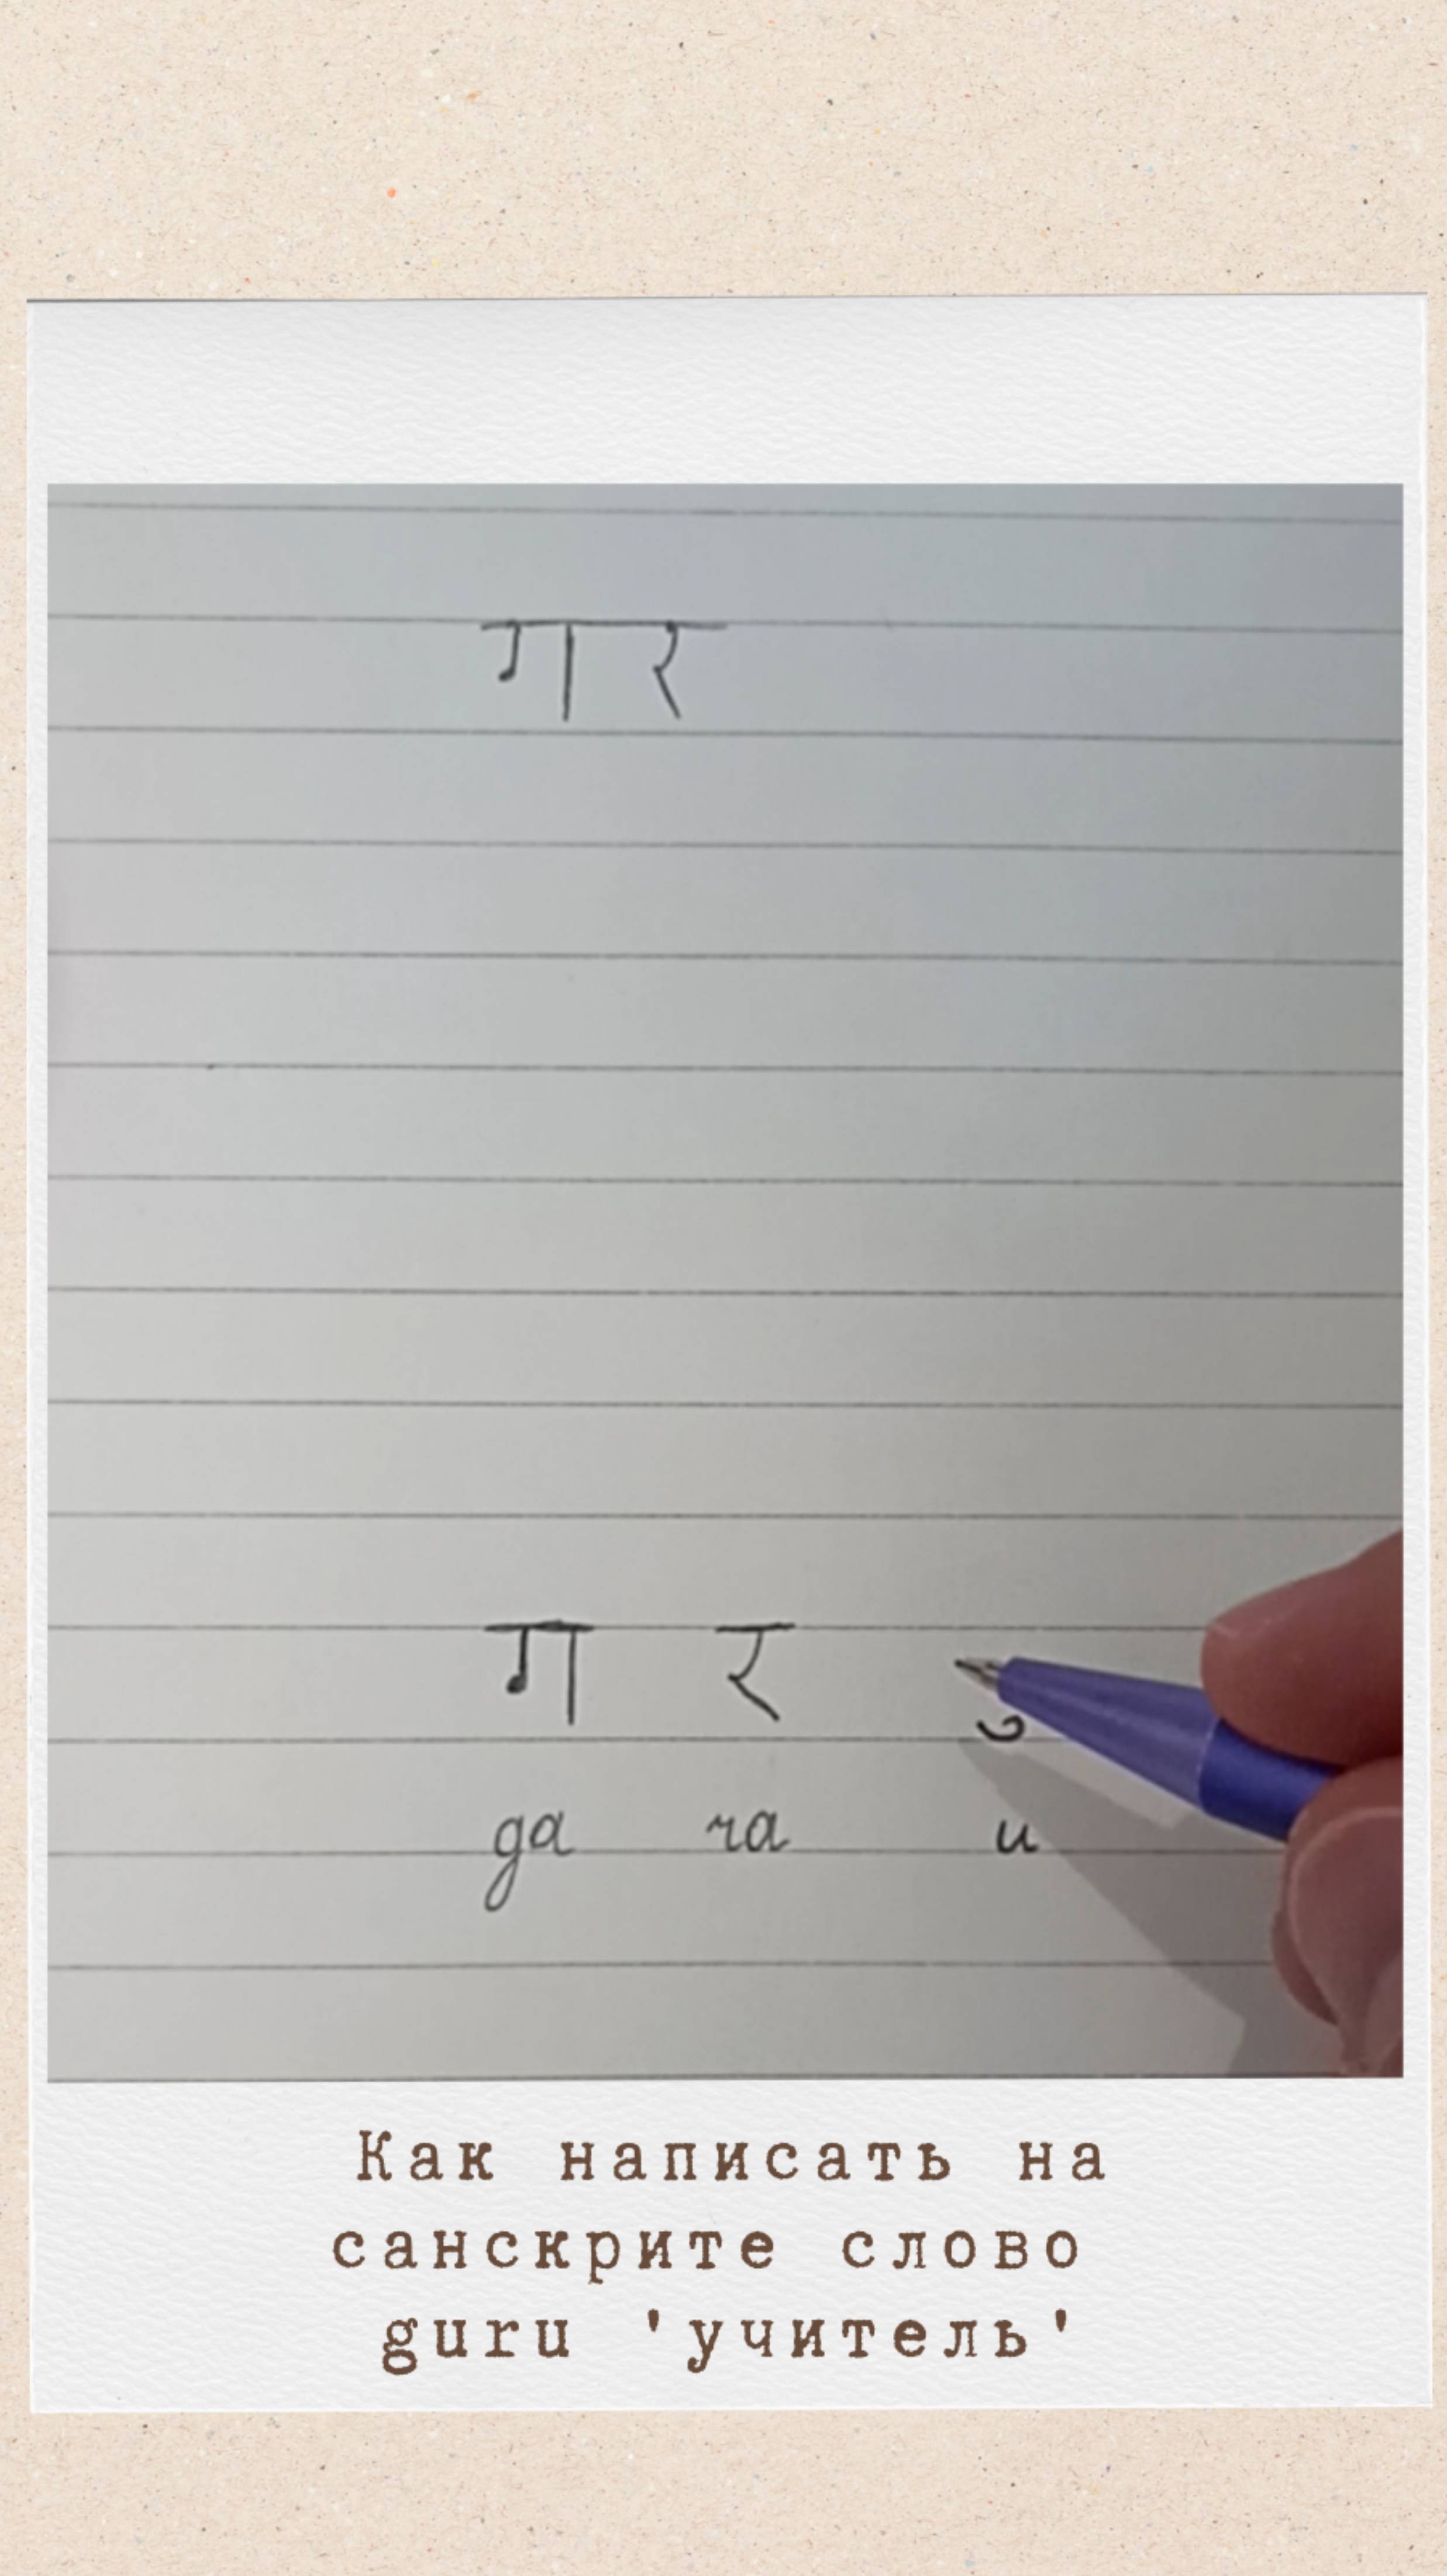 गर
ग र ु
ga ra u
Как написать на
санскрите слово
guru 'учитель'